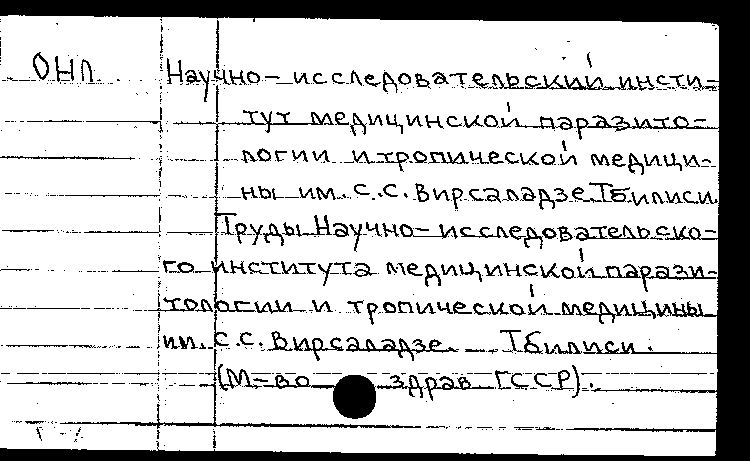 ОНП Научно-исследовательский инсти-
тут медицинской паразито-
логии и тропической медици-
ны им. С.С. Вирсаладзе. Тбилиси
Труды Научно-исследовательско-
го института медицинской парази-
тологии и тропической медицины
им. С.С. Вирсаладзе. Тбилиси.
(М-во здрав ГССР).